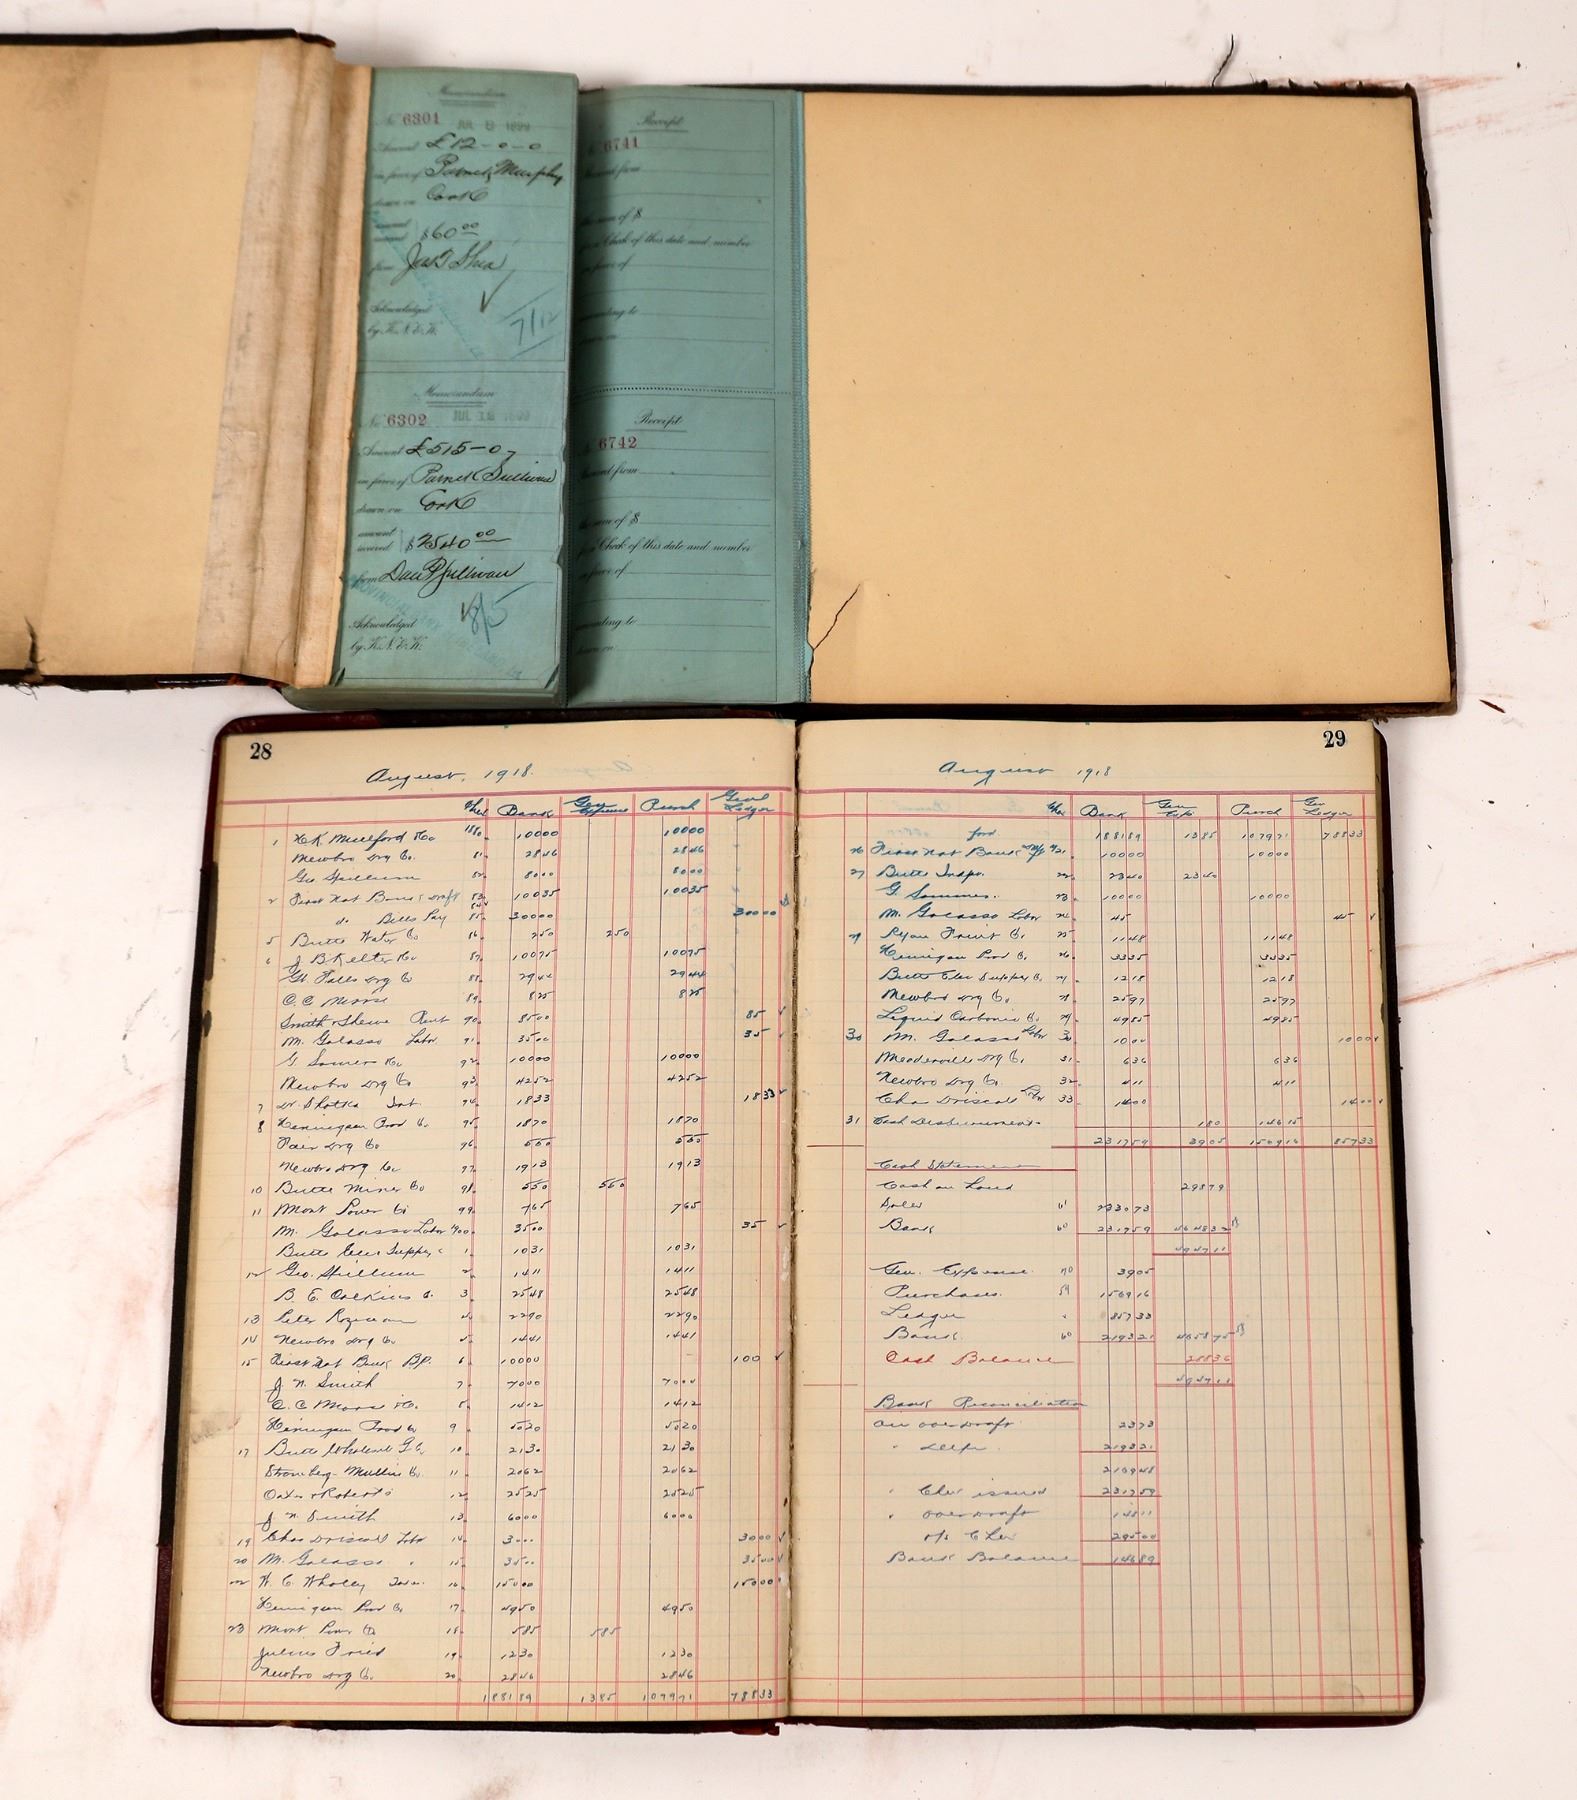 Memorandum
6301 JUL 1899
Amount £12-0-0
in favor of Murphy
drawn on Cork
amount
$60.00
from Shea
Acknowledged
by K.N.&K.
7/12
Memorandum
No 6302 JUL 18 1899
Amount £515-0-
in favor of Sullivan
drawn on Cork
amount
received $2540.00
from Sullivan
8/5
Acknowledged
by K.N.&K.
Receipt
6741
Received from
the sum of $
for Check of this date and number
in favor of
amounting to
drawn on
Receipt
6742
Received from
the sum of $
for Check of this date and number
in favor of
amounting to
drawn on
28
August, 1918.
Bank Gen Expense Purch Genl Ledger
1 H.K. Mulford Co 10000 10000
Newbro Drg Co. 81 2846 2846
Geo Spillum 82 8000 8000
2 First Nat Bank Draft 10035 10035
do Bills Pay 85 30000 30000
5 Butte Water Co 86 250 250
6 J B Kelter Co 87 10095 10095
Gt Falls Drg Co 88 2944 2944
C.C. Morse 89 825 825
Smith & Rent 90 8500 85
M. Golasso Labor 91 3500 35
G. Co. 92 10000 10000
Newbro Drg Co 93 4252 4252
7 Dr. Int. 94 1833 1833
8 Hennigan Prod Co. 95 1870 1870
Fair Drg Co 96 550 550
Newbro Drg Co 97 1913 1913
10 Butte Miner Co 98 550 550
11 Mont Power Co 99 765 765
M. Golasso Labor 3500 35
Butte Elec Supply 1 1031 1031
12 Geo. Spillum 2 1411 1411
B. E. Calkins C. 3 2548 2548
13 Peter 4 2290 2290
14 Newbro Drg Co 5 1441 1441
15 First Nat Bank B.P. 6 10000 100
J. N. Smith 7 7000 7000
C. C. Morse & Co. 8 1412 1412
Hennigan Prod Co 9 5020 5020
17 Butte Wholesale G Co 10 2130 2130
Stromberg-Mullins Co. 11 2062 2062
Oates & Roberts 12 2525 2525
J. N. Smith 13 6000 6000
19 Chas Driscoll Labor 14 3000 3000
20 M. Golasso " 15 3500 3500
22 W. C. Wholley 16 15000 15000
Hennigan Prod Co 17 4950 4950
23 Mont Power Co 18 585 585
Julius Fried 19 1230 1230
Newbro Drg Co. 20 2846 2846
188189 1385 107971 78833
29
August 1918
Bank Gen Exp Purch Gen Ledger
ford. 188189 1385 107971 78833
26 First Nat Bank 21 10000 10000
27 Butte Indpt. 22 2340 2340
G. 23 10000 10000
M. Golasso Labor 24 45 45
29 Ryan Fruit Co. 25 1148 1148
Hennigan Prod Co. 26 3335 3335
Butte Elec Supply Co. 27 1218 1218
Newbro Drg Co. 28 2597 2597
Liquid Carbonic Co. 29 4985 4985
30 M. Golasso Labor 30 1000 1000
Meaderville Drg Co. 31 636 636
Newbro Drg Co. 32 411 411
Chas Driscoll Labor 33 1400 1400
31 Cash Disbursements. 180 14615
231759 3905 150916 85733
Cash Statement
Cash on hand 29879
Sales 61 233073
Bank 60 231759 464832
494711
Gen. Expense. 70 3905
Purchases. 59 150916
Ledger 85733
Bank 60 219321 465875
Cash Balance 28836
494711
Bank Reconciliation
Au overdraft 2373
" 219321
216948
" Cks issued 231759
" overdraft 14811
o/s Cks 29500
Bank Balance 14689